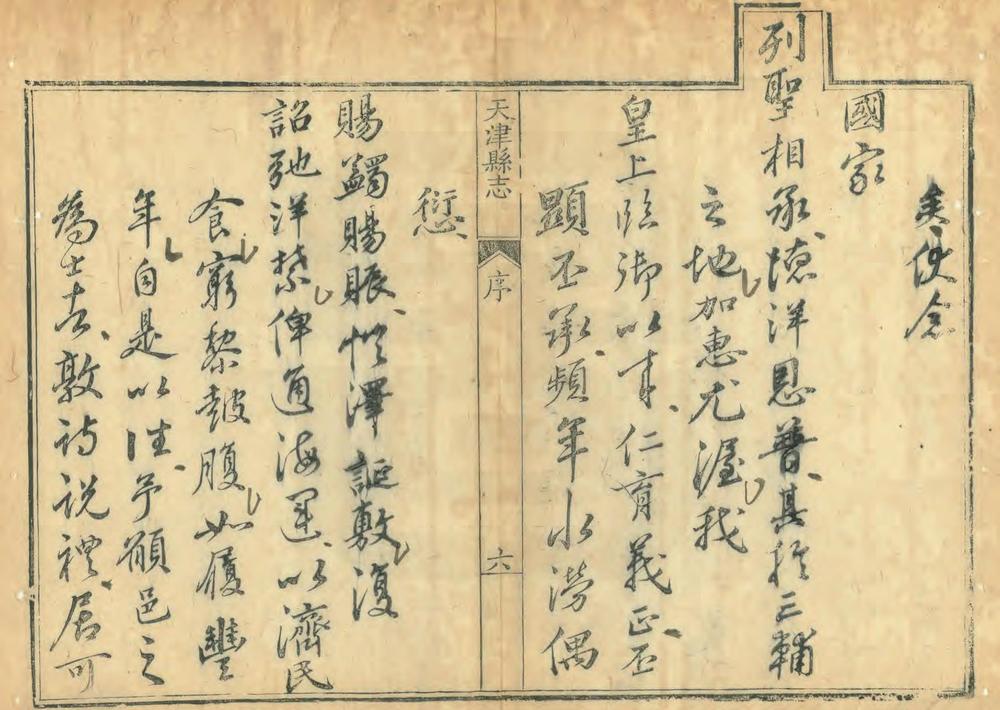 矣伏念
國家
列聖相承德洋恩普其於三輔
之地加惠尤渥我
皇上臨御以來仁育義正丕
顯丕承頻年水澇偶
天津縣志
序
六
愆
賜蠲賜賑愷澤誕敷復
詔弛洋禁俾通海運以濟民
食窮黎鼓腹如履豐
年自是以往予願邑之
為士者敦詩說禮居可